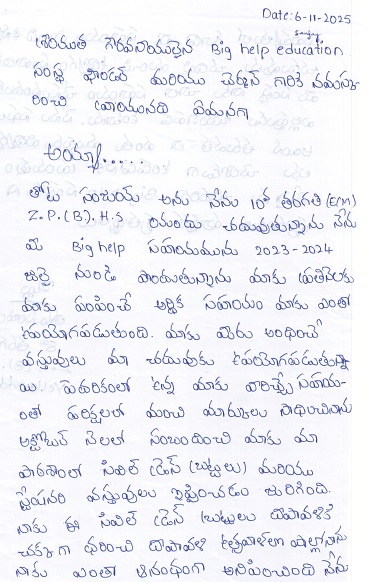 Date: 6-11-2025
Sanjay
శ్రీయుత గౌరవనీయులైన Big help education
సంస్థ ఫౌండర్ మరియు చైర్మన్ గారికి నమస్కా
రించి వ్రాయునది ఏమనగా
అయ్యా.....
తోట సంజయ్ అను నేను 10వ తరగతి (E/M)
Z.P.(B).H.S యందు చదువుతున్నాను నేను
మీ Big help సహాయమును 2023-2024
జులై నుండి పొందుతున్నాను మాకు ప్రతినెలకు
మాకు పంపించే ఆర్థిక సహాయం మాకు ఎంతో
ఉపయోగపడుతుంది. మాకు మీరు అందించే
వస్తువులు మా చదువుకు ఉపయోగపడుతున్నా
యి పేదరికంలో ఉన్న మాకు వారిచ్చే సహాయ
ంతో పరీక్షలలో మంచి మార్కులు సాధించినాను
అక్టోబర్ నెలలో సంబంధించి మాకు మా
పాఠశాలలో సివిల్ డ్రెస్ (బట్టలు) మరియు
స్టేషనరి వస్తువులు ఇప్పించడం జరిగింది.
నాకు ఈ సివిల్ డ్రెస్ (బట్టలు దీపావళికి
చక్కగా ధరించి దీపావళి ఉత్సవాలలో పాల్గొన్నాను
నాకు ఎంతో ఆనందంగా అనిపించింది నేను